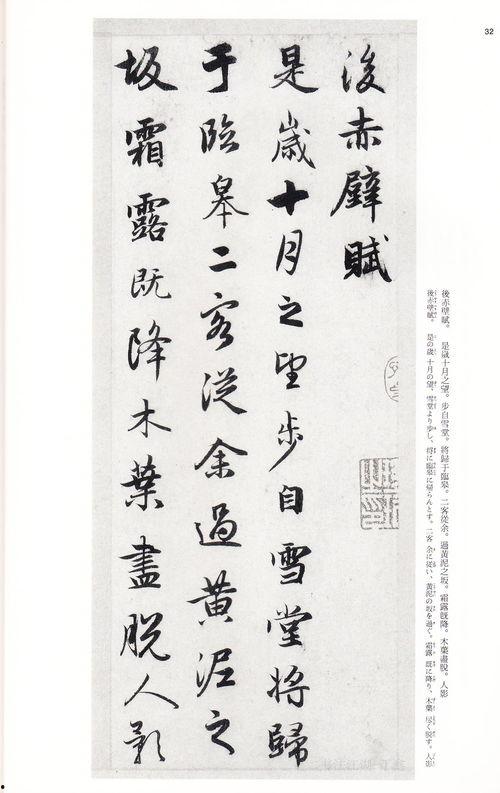 32
後赤壁賦
是歲十月之望步自雪堂將歸
于臨皋二客從余過黃泥之
坂霜露既降木葉盡脫人影
後赤壁賦。　是歳十月之望。步自雪堂。將歸于臨皋。二客從余。過黃泥之坂。霜露既降。木葉盡脫。人影
後赤壁賦。　是の歳十月の望、雪堂より步し、將に臨皋に歸らんとす。二客 余に從い、黃泥の坂を過ぐ。霜露 既に降り、木葉 尽く脫す。人影